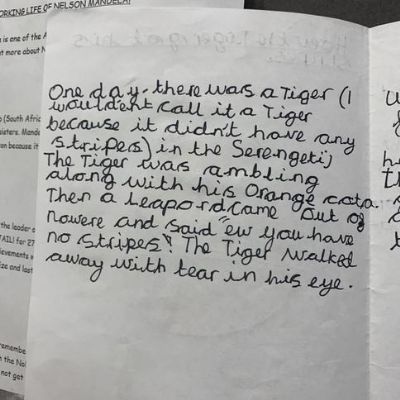 ORKING LIFE OF NELSON MANDELA?
is one of the A
t more about N
(South Afric
sisters. Mande
an because it
the leader o
TAIL! for 27
ievements w
ize and last
remembe
n the No
not get
One day, there was a Tiger (I
would'ent call it a Tiger
because it didn't have any
stripes) in the Serengeti,
The Tiger was ambling
along with his Orange cota.
Then a Leapord came out of
nowere and said "ew you have
no stripes". The Tiger walked
away with tear in his eye.